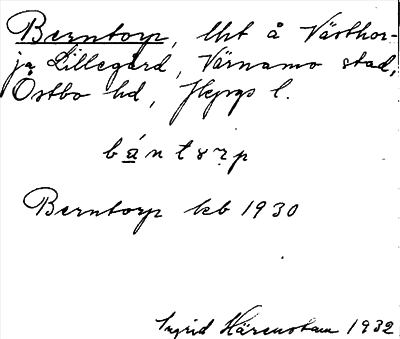 Berntorp, lht å Västhor-
ja Lillegård, Värnamo stad,
Östbo hd, Jkpgs l.
bántorp
Berntorp kb 1930
Ingrid Härenstam 1932